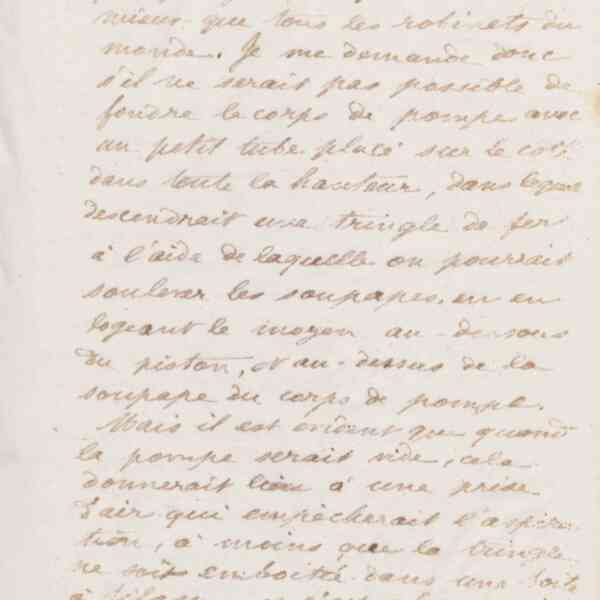 mieux que tous les robinets du
monde. Je me demande donc
s'il ne serait pas possible de
fondre le corps de pompe avec
un petit tube placé sur le côté
dans toute la hauteur, dans lequel
descendrait une tringle de fer
à l'aide de laquelle on pourrait
soulever les soupapes, en en
logeant le moyen au-dessous
du piston, et au-dessus de la
soupape du corps de pompe.
Mais il est évident que quand
la pompe serait vide, cela
donnerait lieu à une prise
d'air qui empêcherait l'aspira-
tion, à moins que la tringle
ne soit emboîtée dans une boîte
à